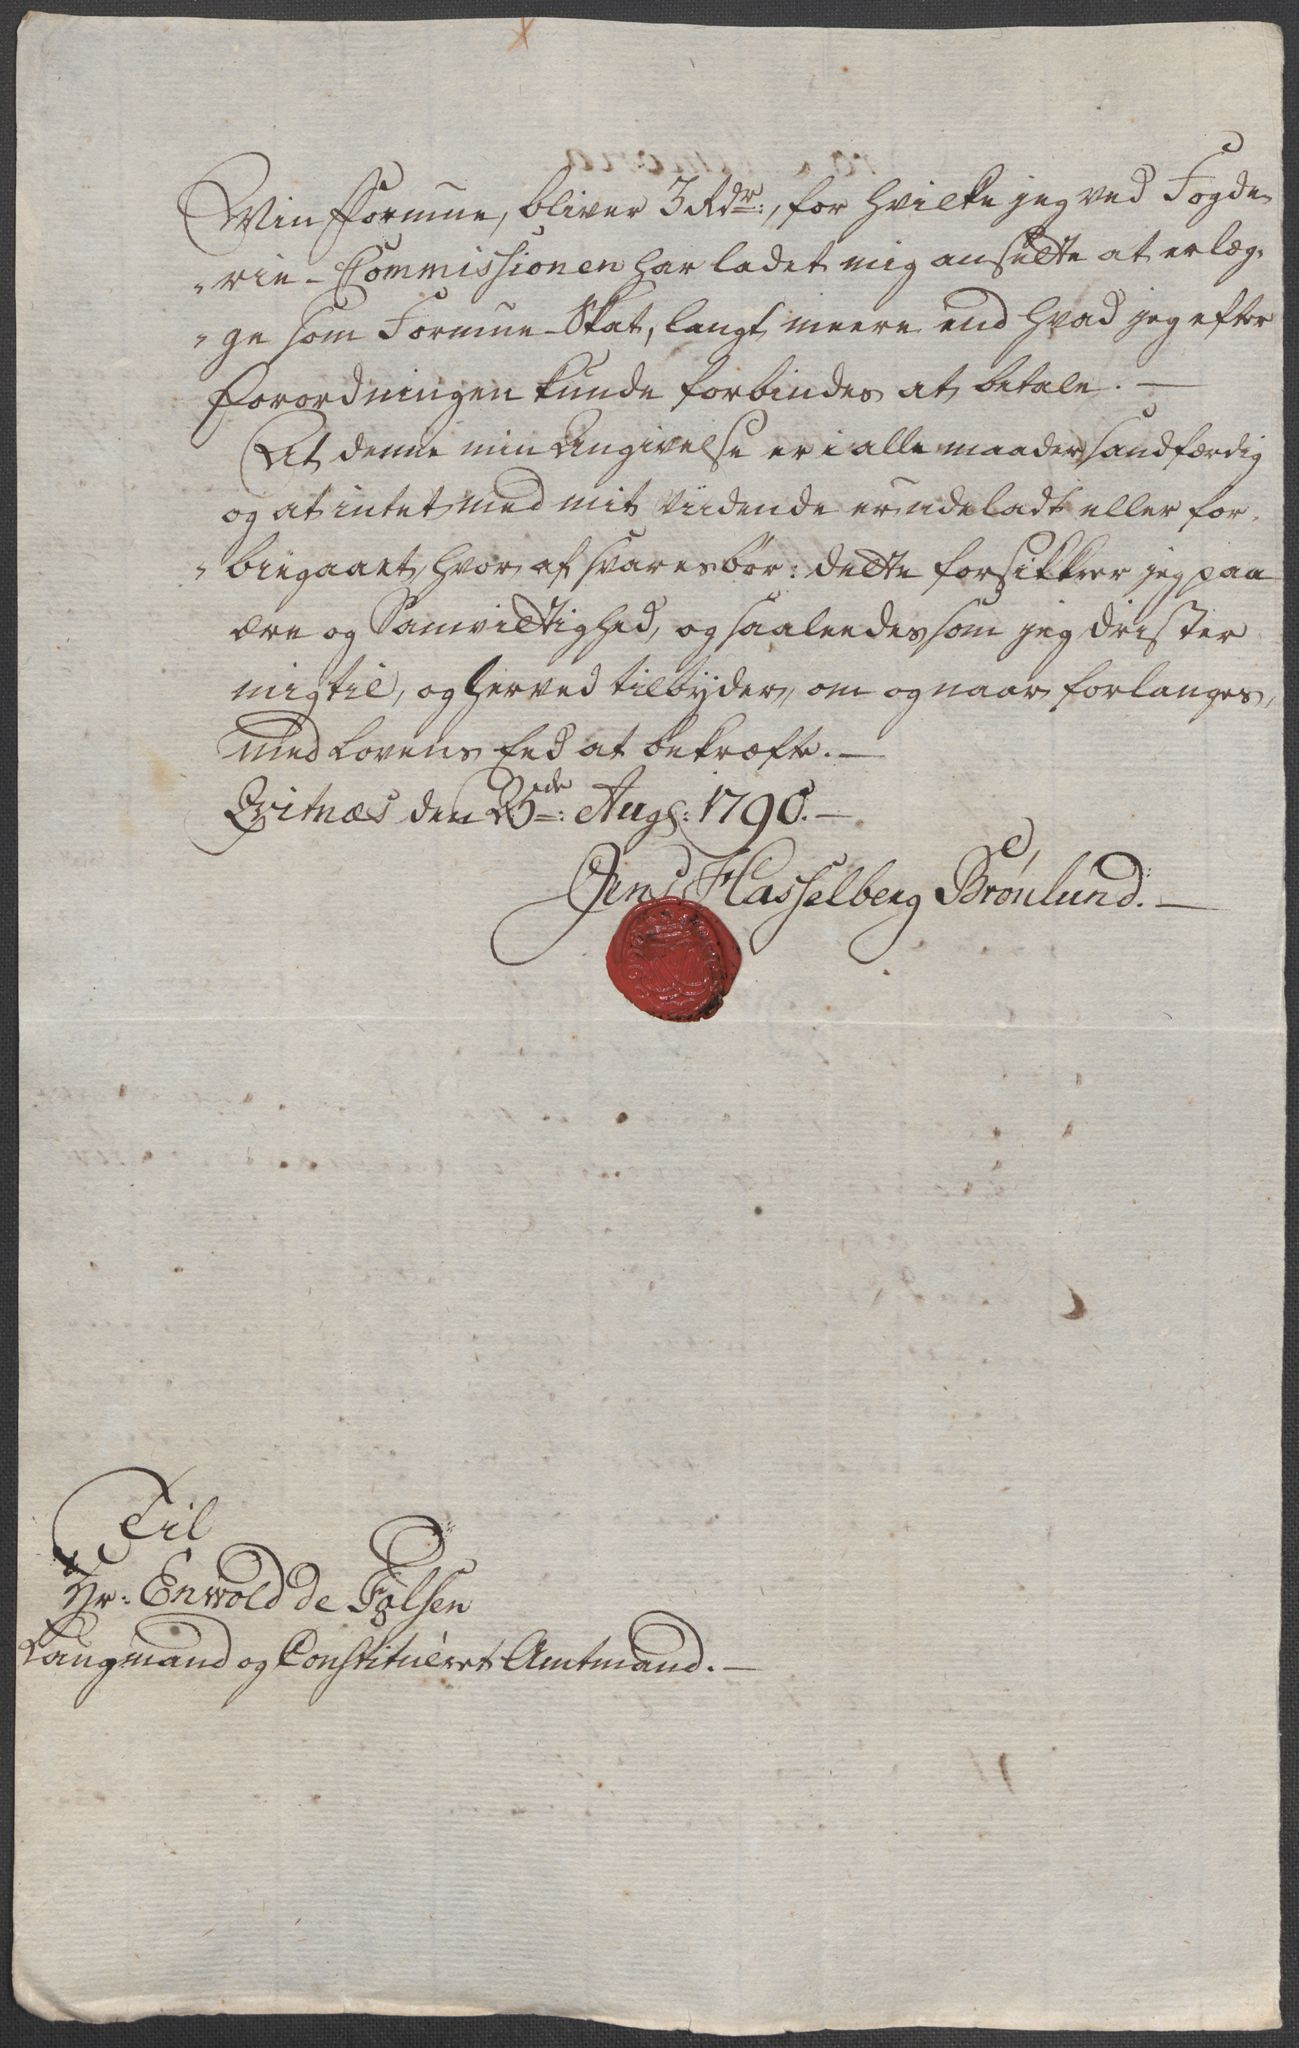 Min Formue, bliver 3 Rdr:, for hvilke jeg ved Fogde-
"rie-Commissionen har ladet mig ansætte at erlæg-
"ge som Formue-Skat, langt meere end hvad jeg efter
Forordningen kunde forbindes at betale. —
At denne min Angivelse er i alle maader sandfærdig
og at intet med mit Viidende er udeladt eller for-
"biegaaet, hvor af svares bør: dette forsikkrer jeg paa
ære og Samvittighed, og saaleedes som jeg drister
mig til, og herved tilbyder, om og naar forlanges,
med Lovens Eed at bekræfte. —
Qvitnæs den 23de: Aug: 1790. —
Jens Hasselberg Brónlund. —
Til
Hr: Enwold de Falsen
Laugmand og Constitueret Amtmand. —